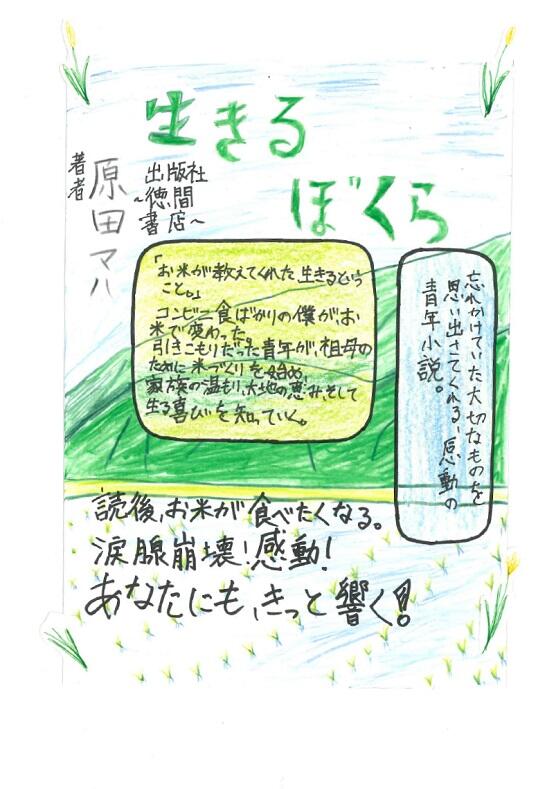 生きる
ぼくら
著者
原田マハ
出版社
~徳間
書店~
「お米が教えてくれた、生きるという
こと。」
コンビニ食ばかりの僕が、お
米で変わった。
引きこもりだった青年が、祖母の
ために米づくりを始め、
家族の温もり、大地の恵み、そして
生る喜びを知っていく。
忘れかけていた大切なものを
思い出させてくれる、感動の
青年小説。
読後、お米が食べたくなる。
涙腺崩壊!感動!
あなたにも、きっと響く!